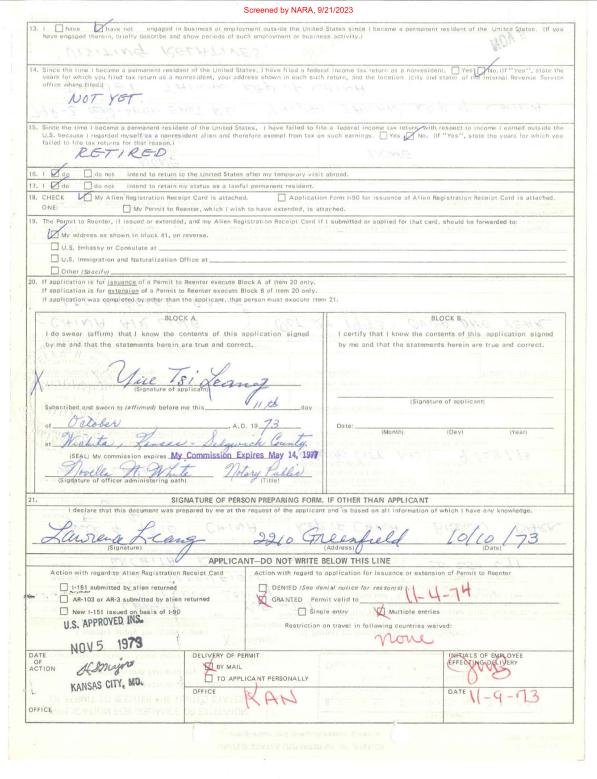 Screened by NARA, 9/21/2023
13. I ☐ have ☑ have not engaged in business or employment outside the United States since I became a permanent resident of the United States. (If you have engaged therein, briefly describe and show periods of such employment or business activity.)
14. Since the time I became a permanent resident of the United States, I have filed a federal income tax return as a nonresident. ☐ Yes ☑ No. (If "Yes", state the
years for which you filed tax return as a nonresident, your address shown in each such return, and the location (city and state) of the Internal Revenue Service
office where filed.)
NOT YET.
15. Since the time I became a permanent resident of the United States, I have failed to file a federal income tax return with respect to income I earned outside the
U.S. because I regarded myself as a nonresident alien and therefore exempt from tax on such earnings. ☐ Yes ☑ No. (If "Yes", state the years for which you
failed to file tax returns for that reason.)
RETIRED
16. I ☑ do ☐ do not intend to return to the United States after my temporary visit abroad.
17. I ☑ do ☐ do not intend to retain my status as a lawful permanent resident.
18. CHECK ☑ My Alien Registration Receipt Card is attached. ☐ Application Form I-90 for issuance of Alien Registration Receipt Card is attached.
ONE: ☐ My Permit to Reenter, which I wish to have extended, is attached.
19. The Permit to Reenter, if issued or extended, and my Alien Registration Receipt Card if I submitted or applied for that card, should be forwarded to:
☑ My address as shown in block #1, on reverse.
☐ U.S. Embassy or Consulate at
☐ U.S. Immigration and Naturalization Office at
☐ Other (Specify)
20. If application is for issuance of a Permit to Reenter execute Block A of Item 20 only.
If application is for extension of a Permit to Reenter execute Block B of Item 20 only.
If application was completed by other than the applicant, that person must execute Item 21.
BLOCK A
I do swear (affirm) that I know the contents of this application signed
by me and that the statements herein are true and correct.
X Yue Tsi Leang
(Signature of applicant)
Subscribed and sworn to (affirmed) before me this 11th day
of October, A.D. 1973
at Wichita, Kansas - Sedgwick County
(SEAL) My commission expires My Commission Expires May 14, 1977
Novella N. White Notary Public
(Signature of officer administering oath) (Title)
BLOCK B
I certify that I know the contents of this application signed
by me and that the statements herein are true and correct.
(Signature of applicant)
Date:
(Month) (Day) (Year)
21. SIGNATURE OF PERSON PREPARING FORM, IF OTHER THAN APPLICANT
I declare that this document was prepared by me at the request of the applicant and is based on all information of which I have any knowledge.
Lawrence Leang 2210 Greenfield 10/10/73
(Signature) (Address) (Date)
APPLICANT—DO NOT WRITE BELOW THIS LINE
Action with regard to Alien Registration Receipt Card
☐ I-151 submitted by alien returned
☐ AR-103 or AR-3 submitted by alien returned
☐ New I-151 issued on basis of I-90
Action with regard to application for issuance or extension of Permit to Reenter
☐ DENIED (See denial notice for reasons)
☒ GRANTED Permit valid to 11-4-74
☐ Single entry ☒ Multiple entries
Restriction on travel in following countries waived:
none
U.S. APPROVED INS.
NOV 5 1973
KANSAS CITY, MO.
DATE
OF
ACTION
OFFICE
DELIVERY OF PERMIT
☒ BY MAIL
☐ TO APPLICANT PERSONALLY
OFFICE KAN
INITIALS OF EMPLOYEE
EFFECTING DELIVERY
DATE 11-9-73